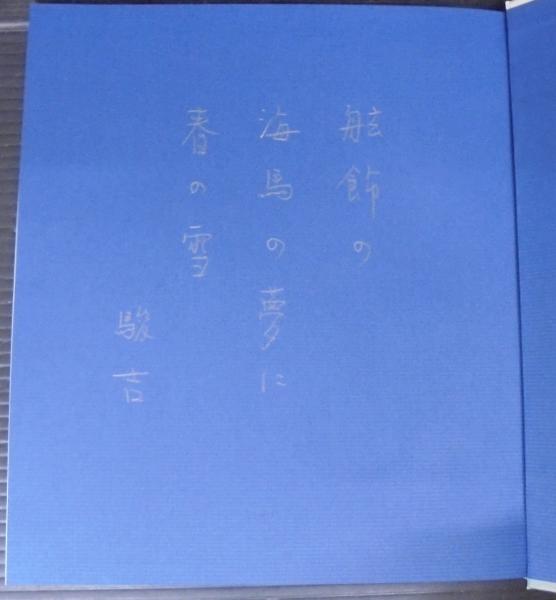 舷飾の
海馬の夢に
春の雪
駿吉